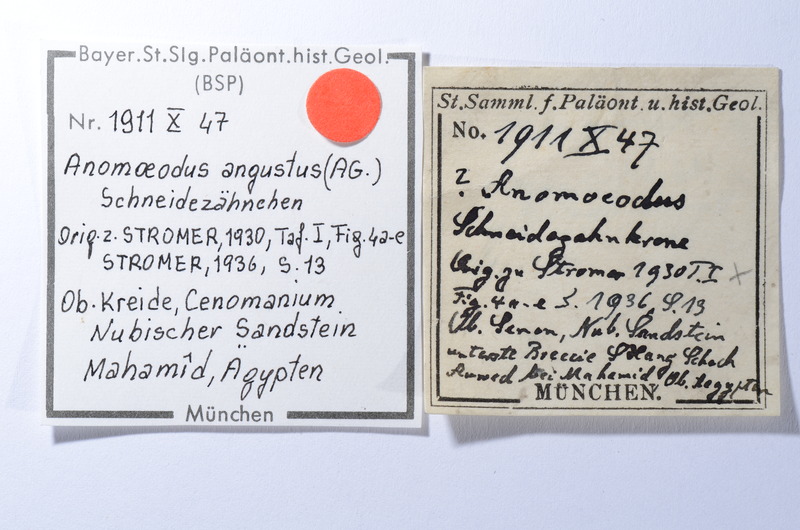 Bayer.St.Slg.Paläont.hist.Geol.
(BSP)
Nr. 1911 X 47
Anomœodus angustus (AG.)
Schneidezähnchen
Orig. z. STROMER, 1930, Taf. I, Fig. 4a-e
STROMER, 1936, S. 13
Ob. Kreide, Cenomanium
Nubischer Sandstein
Mahamîd, Ägypten
München
St. Samml. f. Paläont. u. hist. Geol.
No. 1911 X 47
? Anomoeodus
Schneidezahnkrone
Orig. zu Stromer 1930 T. I
Fig. 4 a-e S. 1936, S. 13
Ob. Senon, Nub. Sandstein
unterste Breccie S Hang
bei Mahamid Ob. Aegypten
MÜNCHEN.